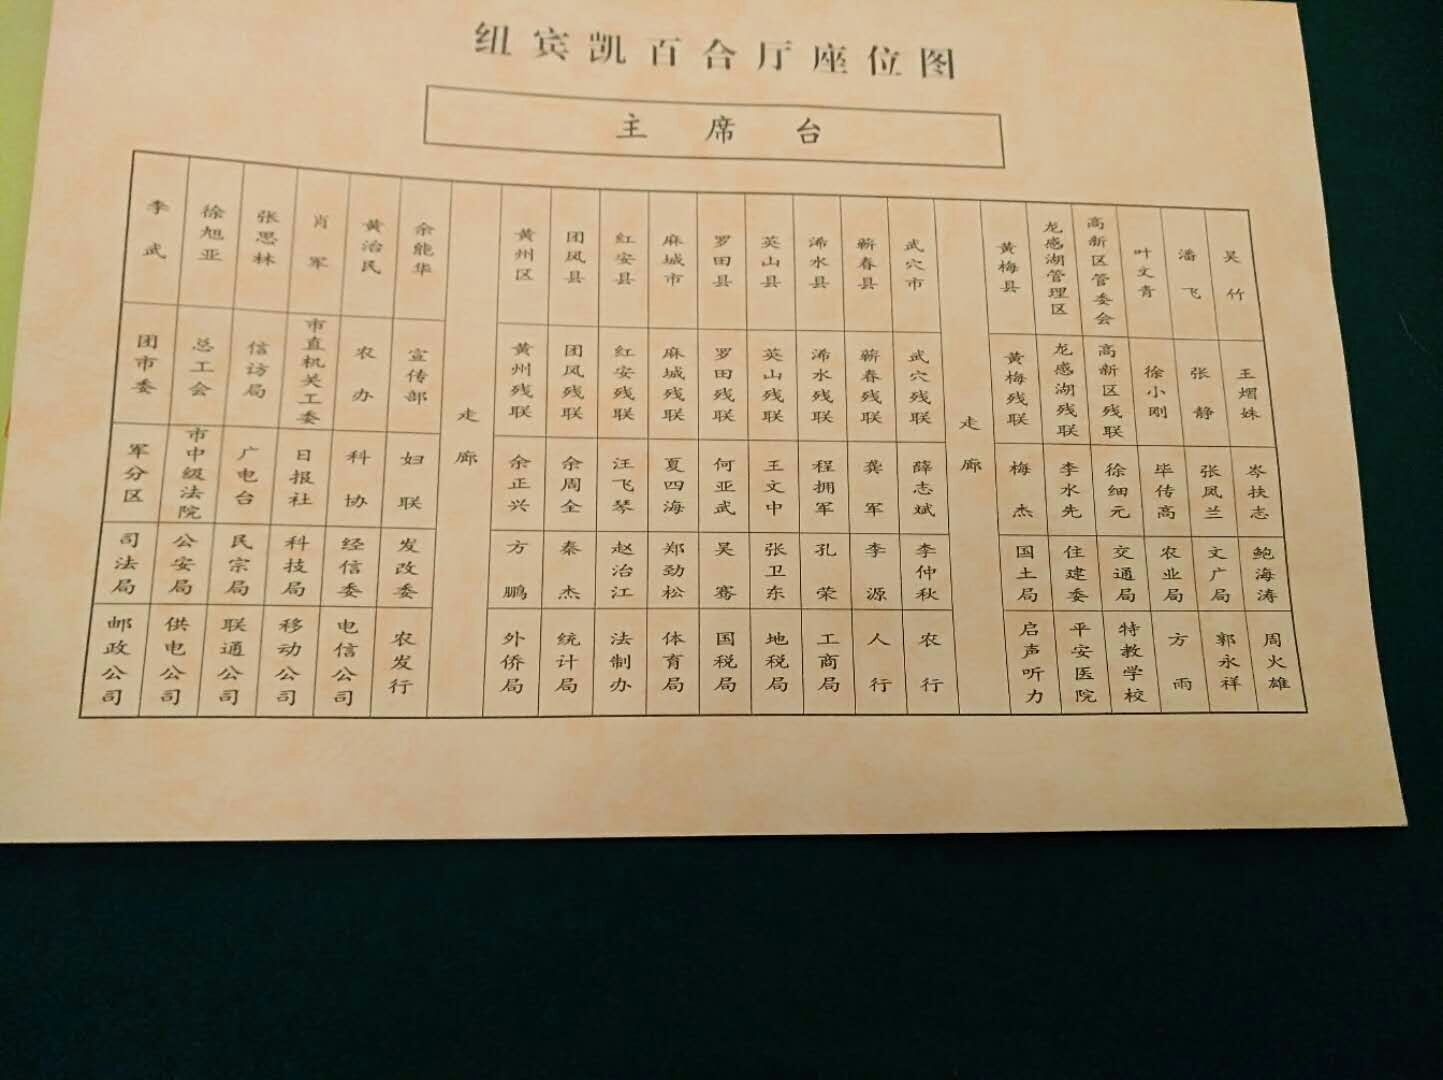 纽宾凯百合厅座位图
主席台
李武 徐旭亚 张思林 肖军 黄治民 余能华 走廊 黄州区 团风县 红安县 麻城市 罗田县 英山县 浠水县 蕲春县 武穴市 走廊 黄梅县 龙感湖管理区 高新区管委会 叶文青 潘飞 吴竹
团市委 总工会 信访局 市直机关工委 农办 宣传部 黄州残联 团风残联 红安残联 麻城残联 罗田残联 英山残联 浠水残联 蕲春残联 武穴残联 黄梅残联 龙感湖残联 高新区残联 徐小刚 张静 王熠姝
军分区 市中级法院 广电台 日报社 科协 妇联 余正兴 余周全 汪飞琴 夏四海 何亚武 王文中 程拥军 龚军 薛志斌 梅杰 李水先 徐细元 毕传高 张凤兰 岑扶志
司法局 公安局 民宗局 科技局 经信委 发改委 方鹏 秦杰 赵治江 郑劲松 吴骞 张卫东 孔荣 李源 李仲秋 国土局 住建委 交通局 农业局 文广局 鲍海涛
邮政公司 供电公司 联通公司 移动公司 电信公司 农发行 外侨局 统计局 法制办 体育局 国税局 地税局 工商局 人行 农行 启声听力 平安医院 特教学校 方雨 郭永祥 周火雄